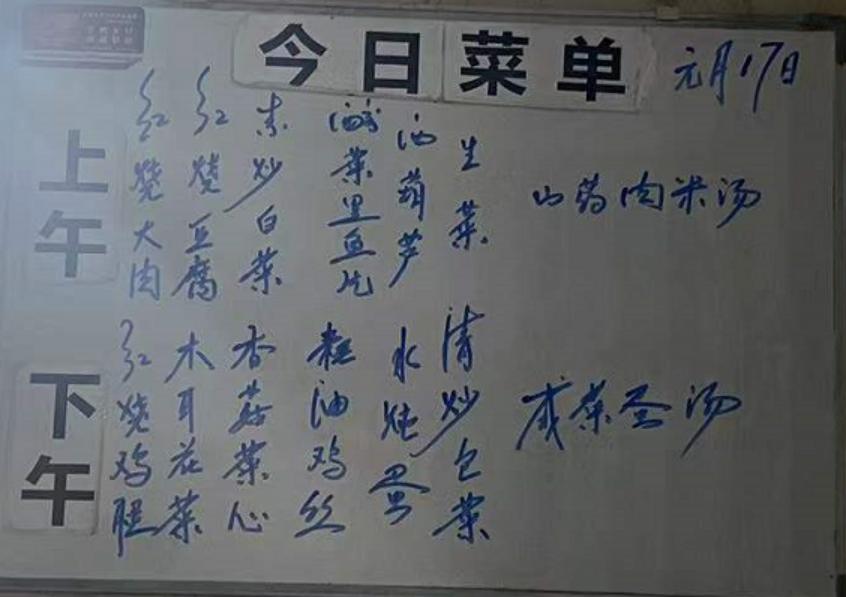 今日菜单
元月17日
上午
红烧大肉
红烧豆腐
素炒白菜
酸菜里鱼片
油葫芦
生菜
山药肉米汤
下午
红烧鸡腿
木耳花菜
香菇菜心
油鸡丝
水炖蛋
清炒包菜
咸菜蛋汤